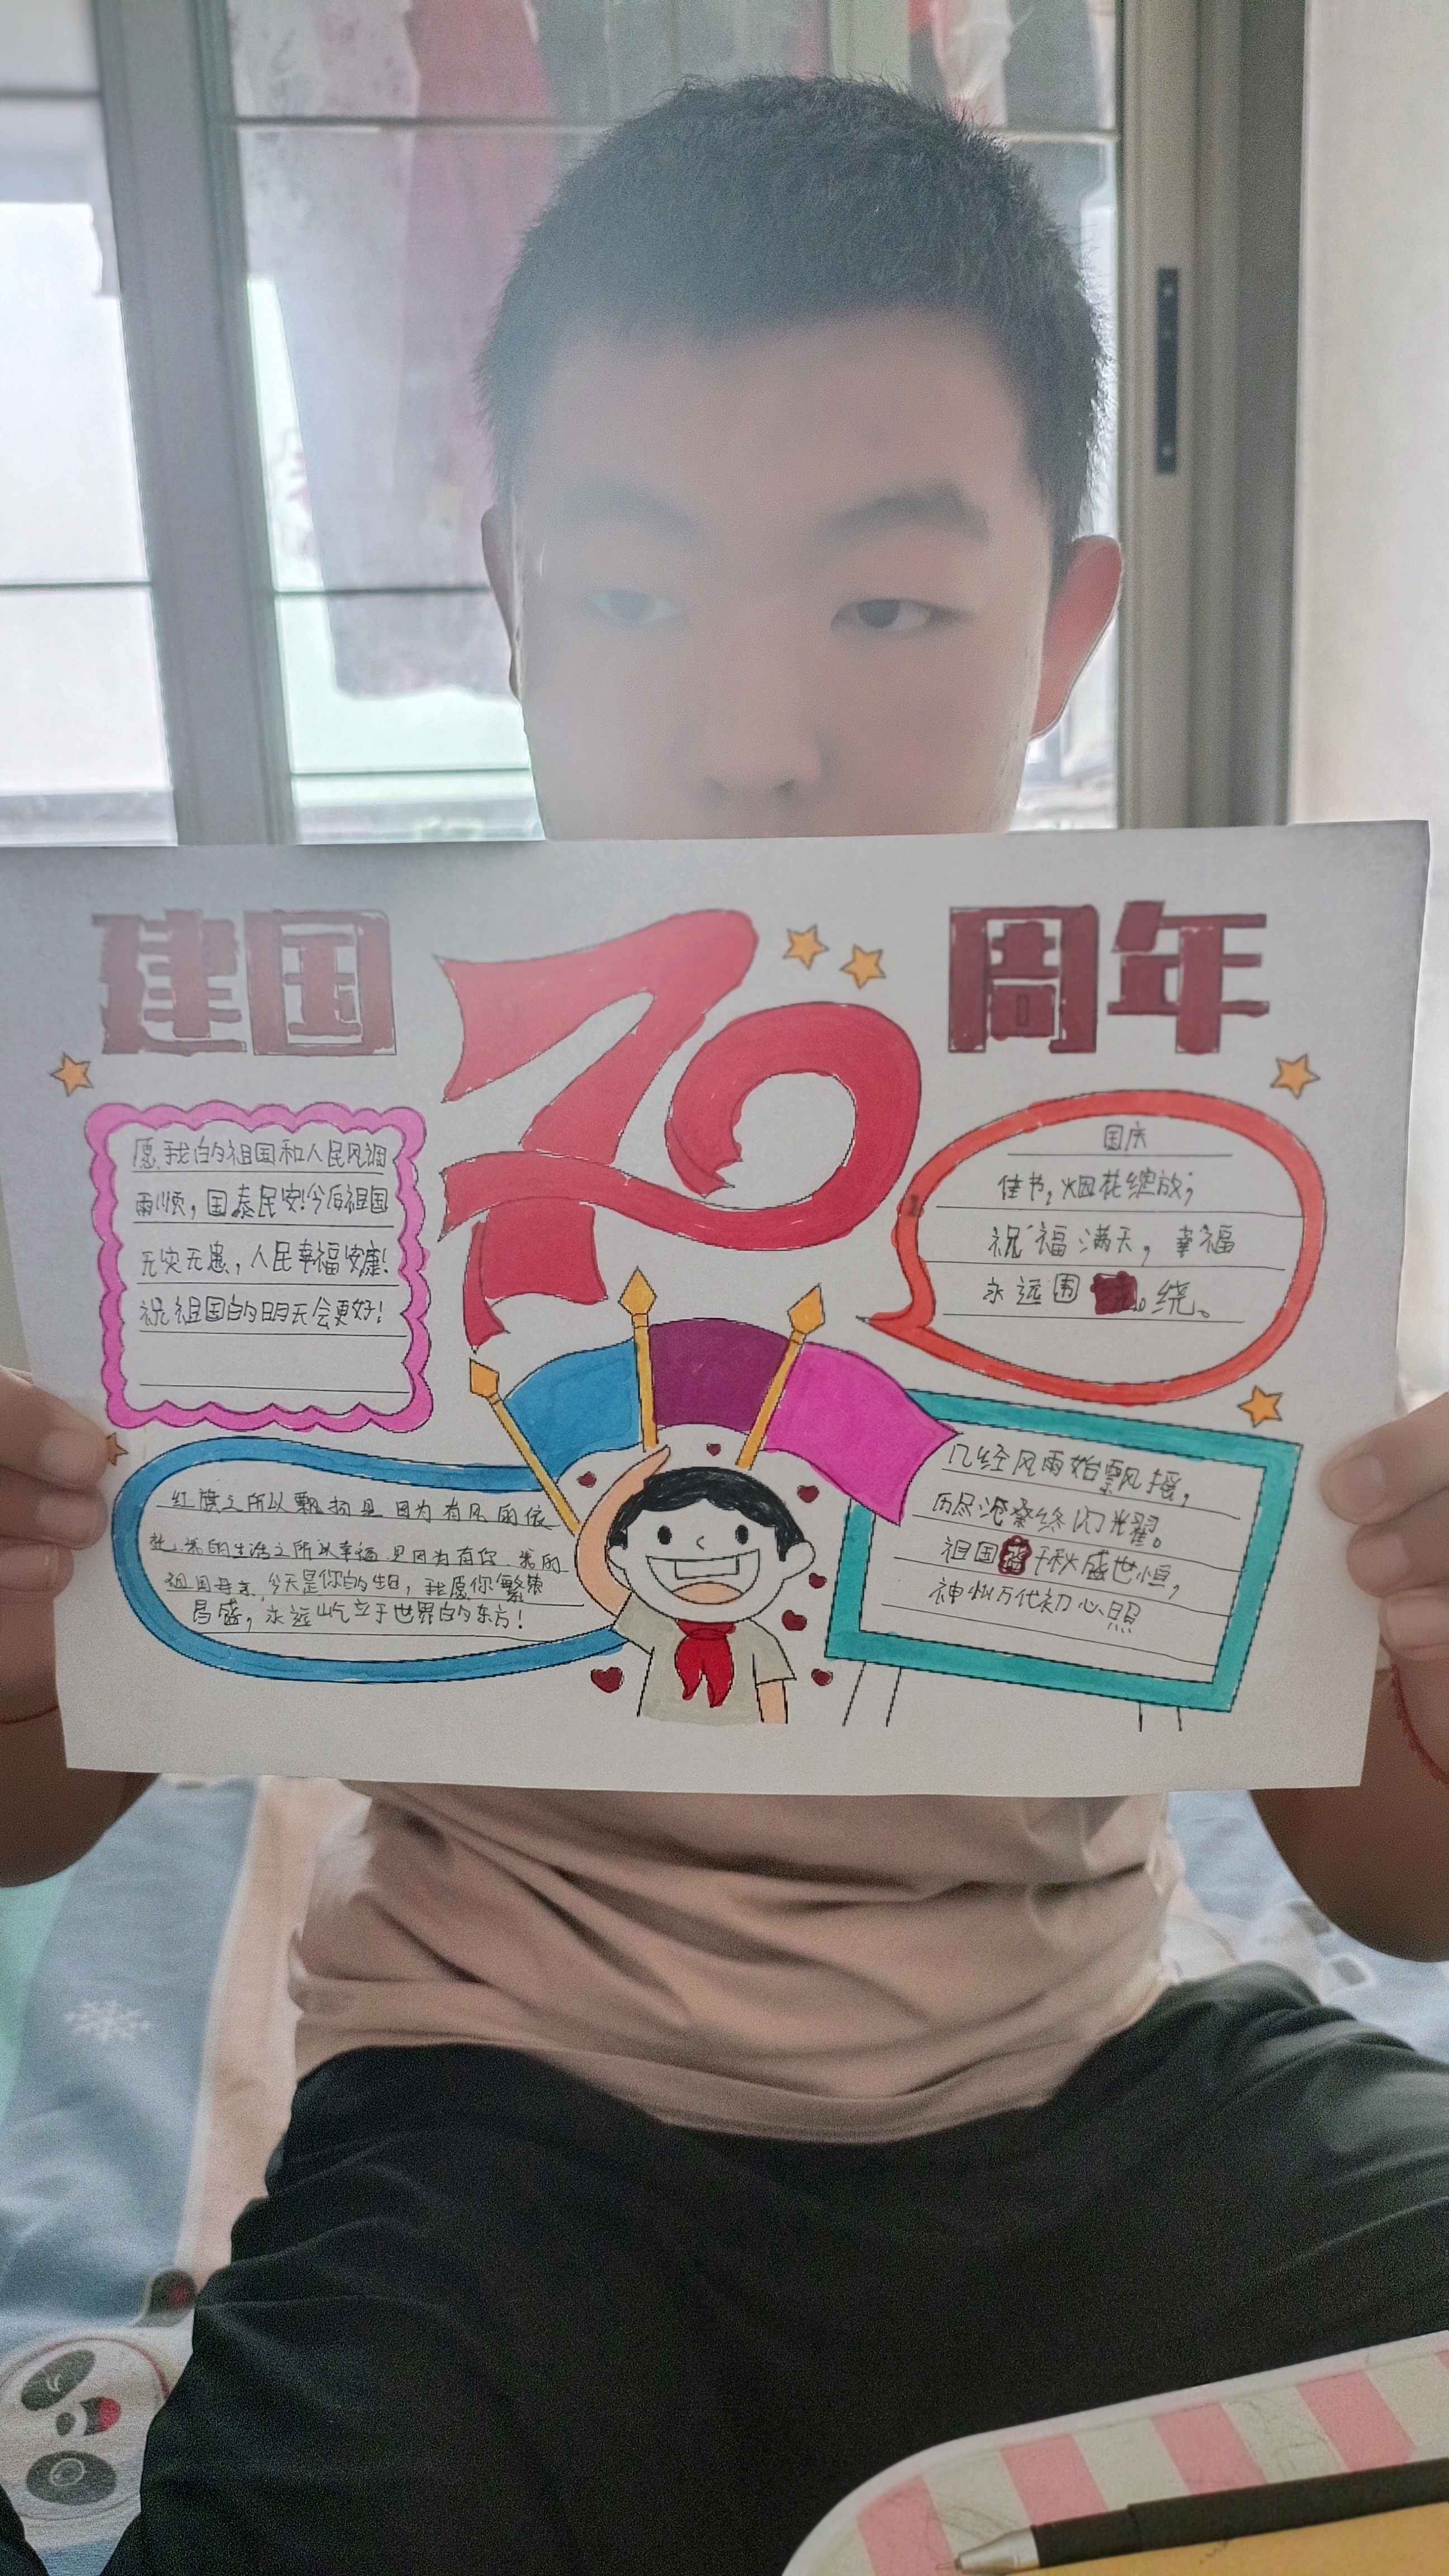 建国70周年
愿我的祖国和人民风调
雨顺，国泰民安!今后祖国
无灾无患，人民幸福安康!
祝祖国的明天会更好!
国庆
佳节，烟花绽放；
祝福满天，幸福
永远围 绕。
红旗之所以飘扬是因为有风的依
托，我的生活之所以幸福是因为有你，我的
祖国母亲，今天是你的生日，我愿你繁荣
昌盛，永远屹立于世界的东方!
几经风雨始飘摇，
历尽沧桑终闪耀。
祖国 千秋盛世恒，
神州万代初心照